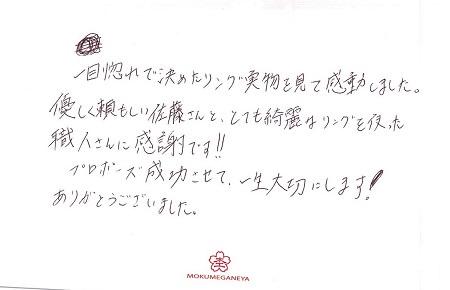 一目惚れで決めたリング実物を見て感動しました。
優しく頼もしい佐藤さんと、とても綺麗なリングを作った
職人さんに感謝です!!
プロポーズ成功させて、一生大切にします!
ありがとうございました。
MOKUMEGANEYA